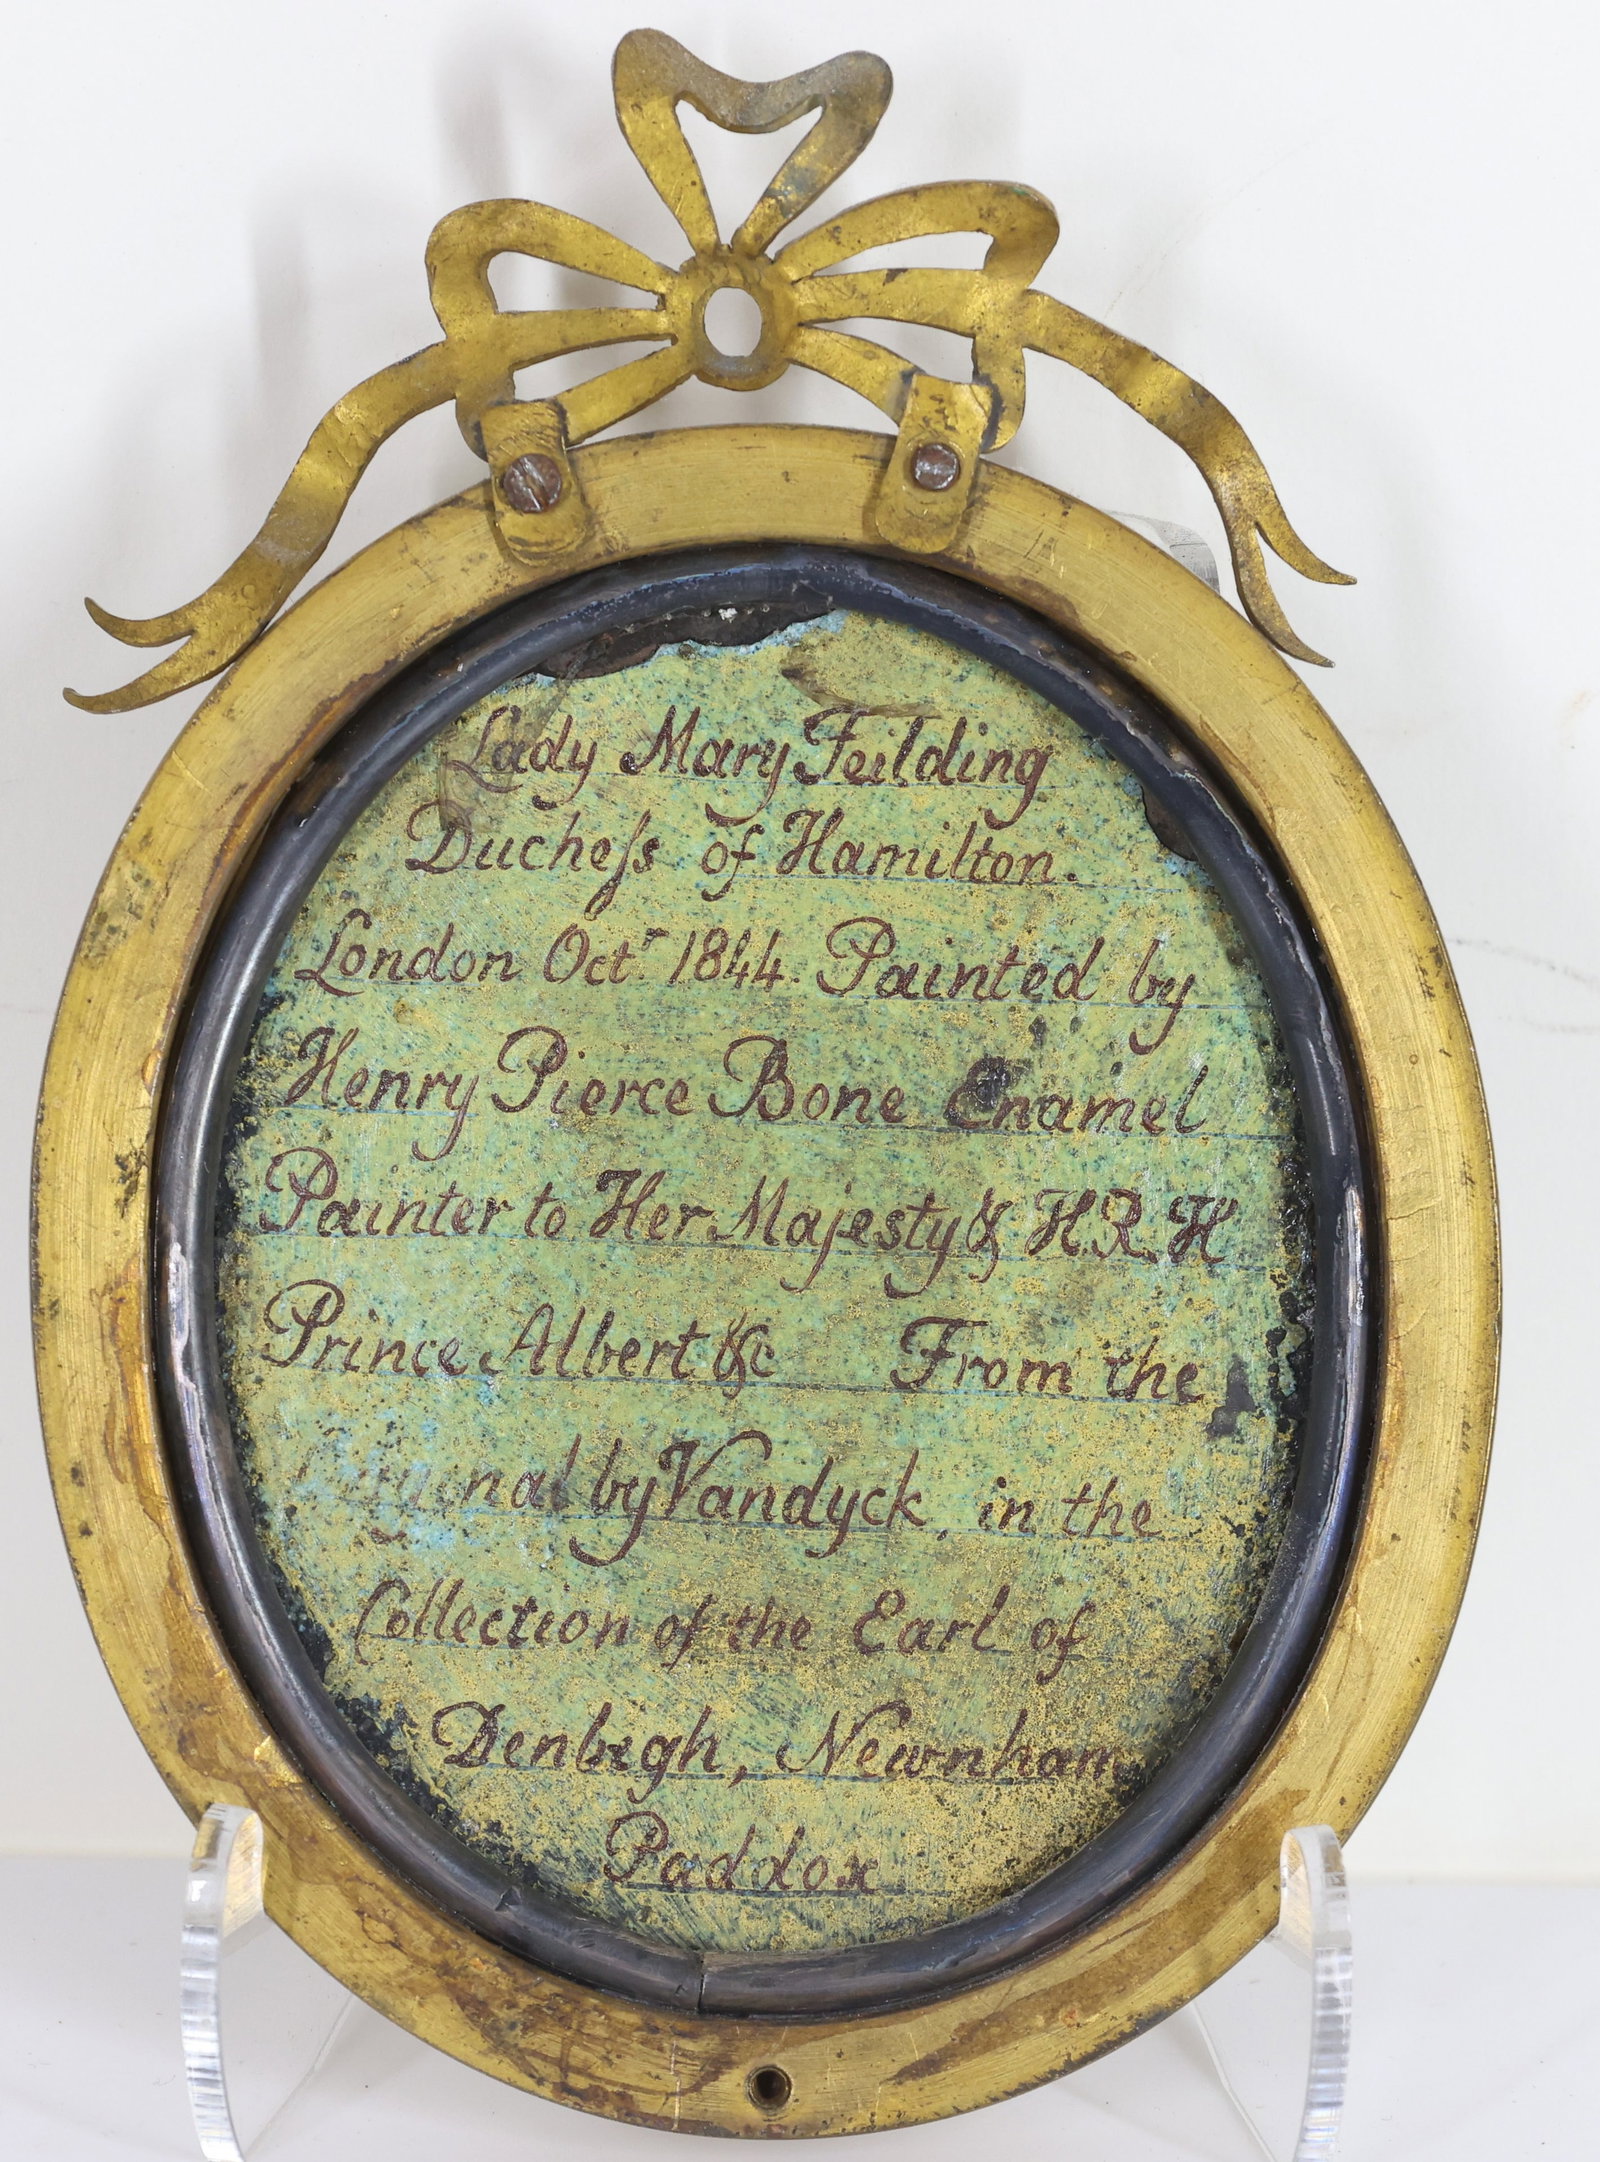 Lady Mary Feilding
Ducheſs of Hamilton.
London Octr. 1844. Painted by
Henry Pierce Bone Enamel
Painter to Her Majesty & H.R.H
Prince Albert &c From the
Original by Vandyck, in the
Collection of the Earl of
Denbigh, Newnham
Paddox